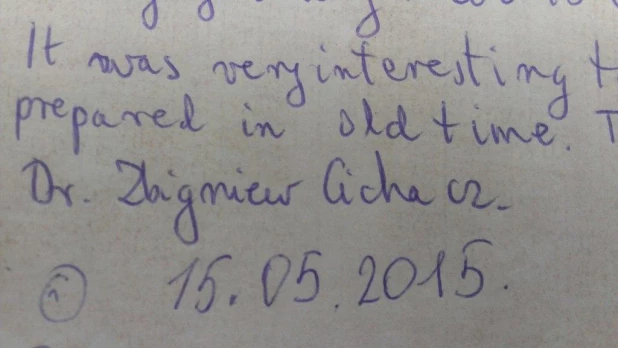 It was very interesting
prepared in old time. T
Dr. Zbigniew Cichacz.
15.05.2015.